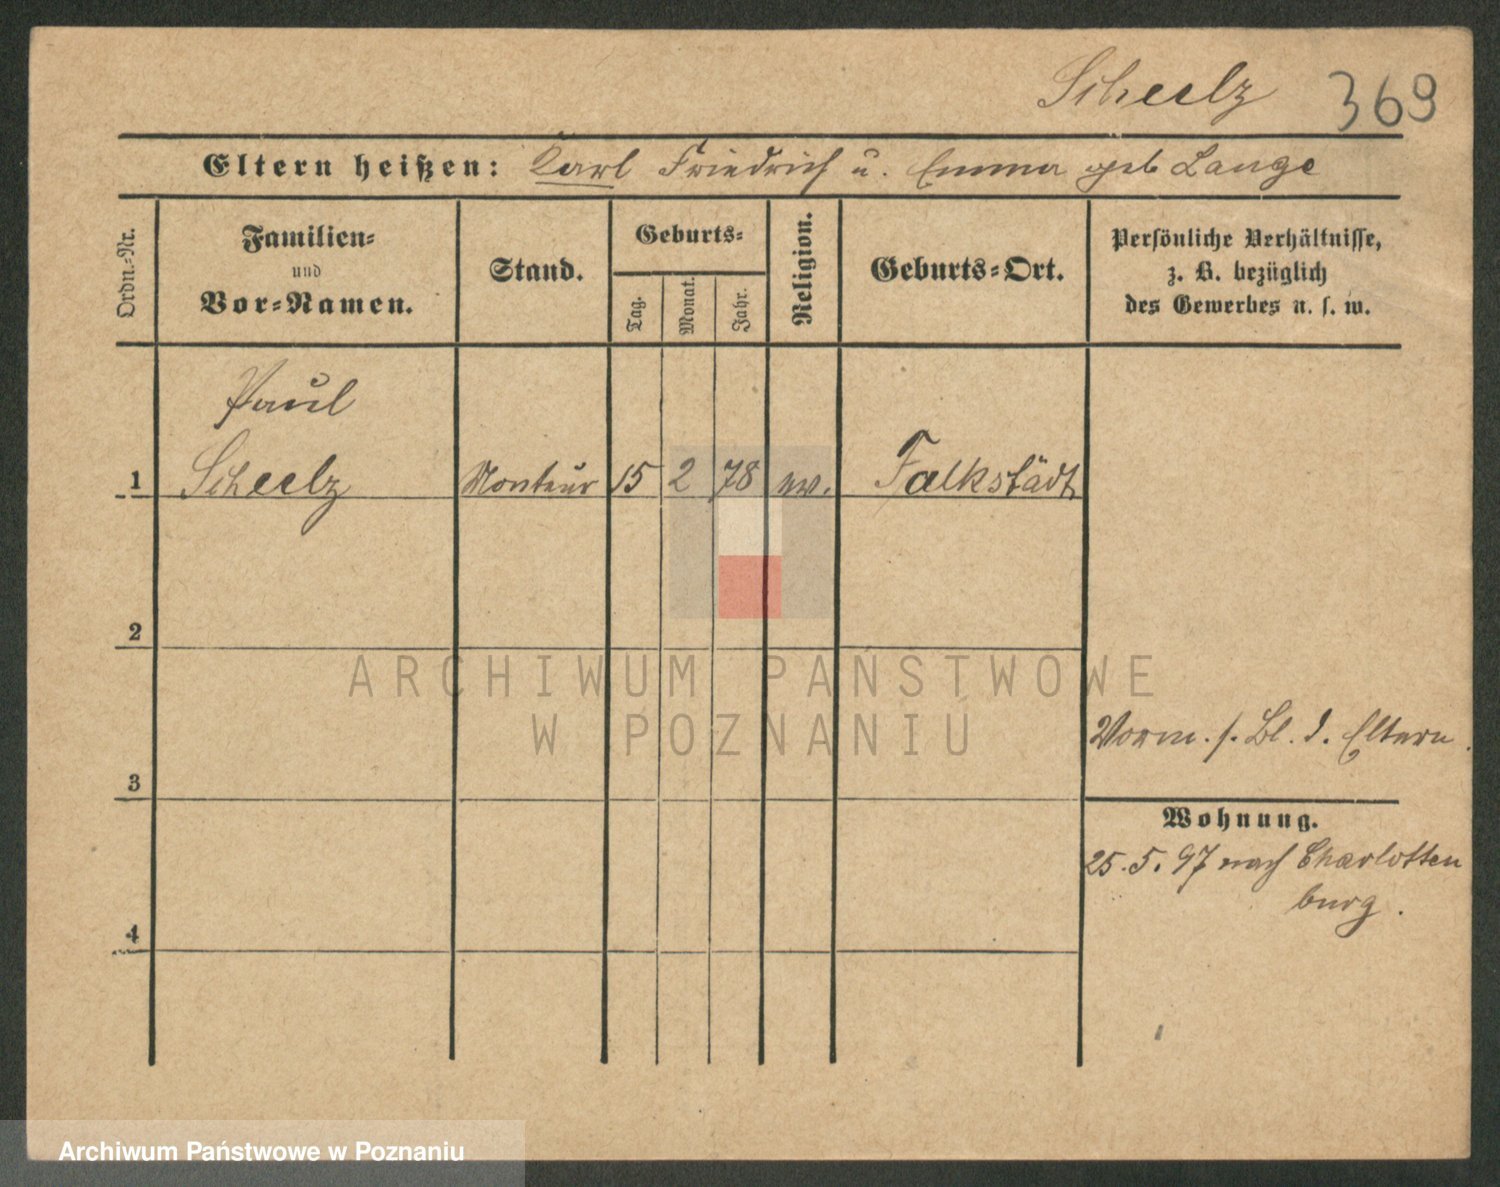 Scheelz 369
Eltern heißen: Karl Friedrich u. Emma geb Lange
Ordn.-Nr.
Familien-
und
Vor-Namen.
Stand.
Geburts-
Tag.
Monat.
Jahr.
Religion.
Geburts-Ort.
Persönliche Verhältnisse,
z. B. bezüglich
des Gewerbes u. s. w.
Paul
1 Scheelz Monteur 15 2 78 ev. Falkstädt
2
3
4
Vorm. s. Bl. d. Eltern.
Wohnung.
25.5.97 nach Charlotten
burg.
ARCHIWUM PAŃSTWOWE
W POZNANIU
Archiwum Państwowe w Poznaniu